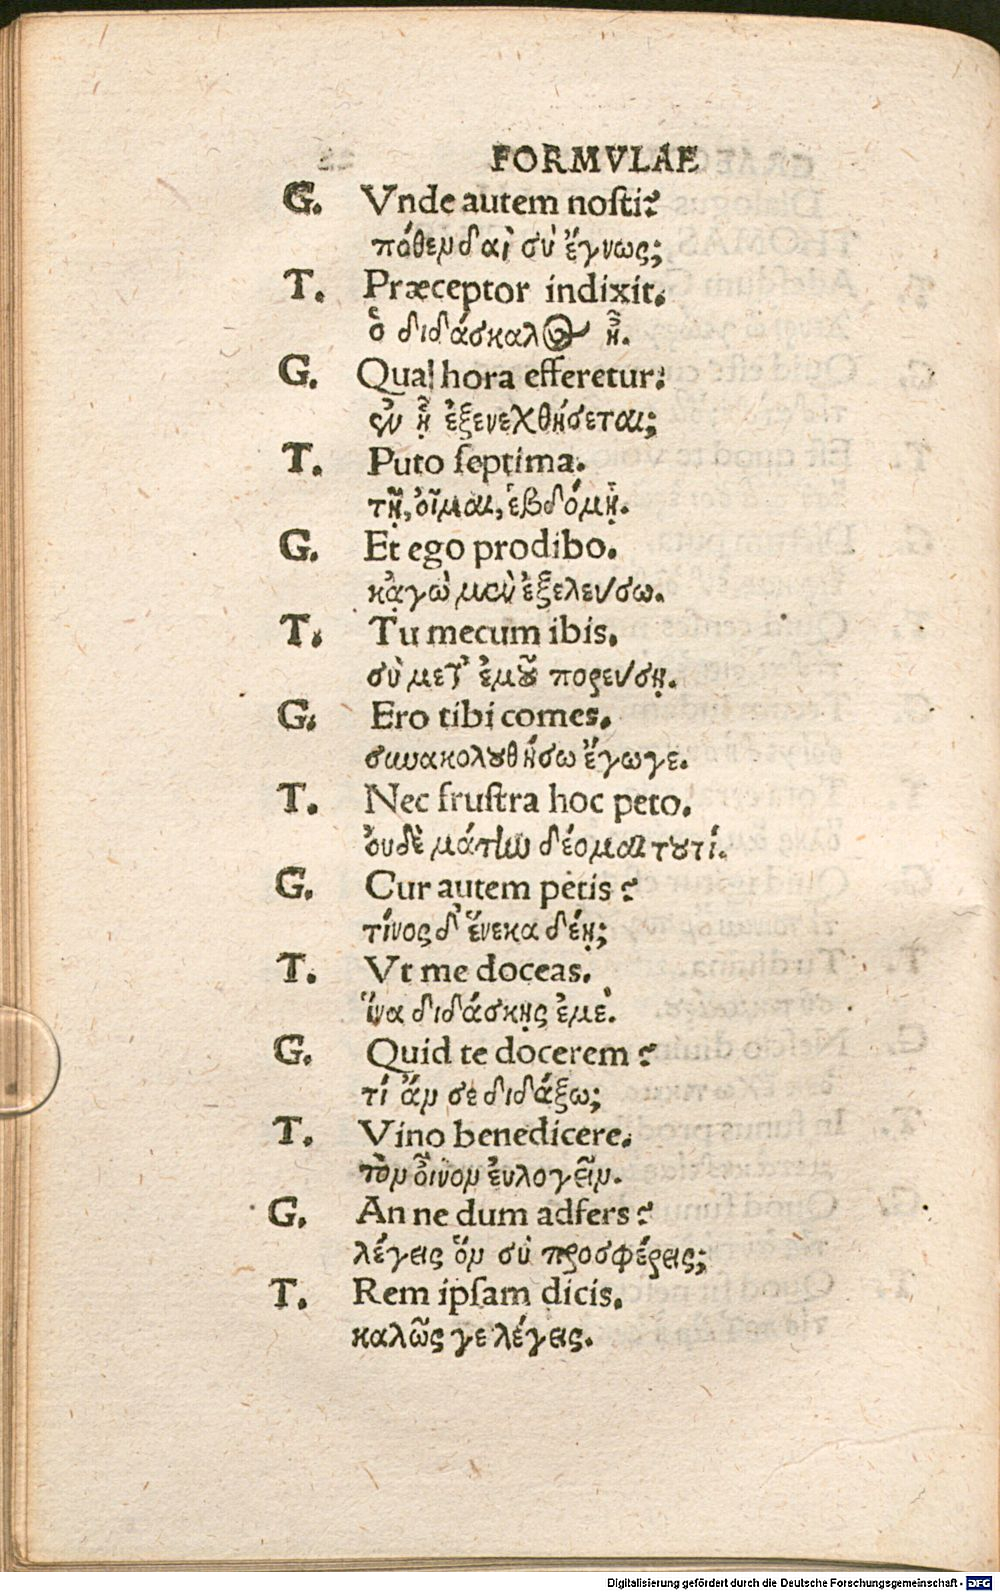 FORMVLAE
G. Vnde autem nosti?
πόθεν δαὶ σὺ ἔγνως;
T. Præceptor indixit.
ὁ διδάσκαλος ἦ.
G. Qua hora efferetur?
ἐξενεχθήσεται;
T. Puto septima.
τῇ, οἶμαι, ἑβδόμῃ.
G. Et ego prodibo.
κἀγὼ μοὺ ἐξελεύσω.
T. Tu mecum ibis.
σὺ μετ' ἐμοῦ πορεύσῃ.
G. Ero tibi comes.
συνακολουθήσω ἔγωγε.
T. Nec frustra hoc peto.
ὀυδὲ μάτην δέομαι τουτί.
G. Cur autem petis?
τίνος δ' ἕνεκα δέῃ;
T. Vt me doceas.
ἵνα διδάσκῃς ἐμέ.
G. Quid te docerem?
τί ἂν σε διδάξω;
T. Vino benedicere.
τὸν οἶνον ἐυλογεῖν.
G. An ne dum adfers?
λέγεις ὃν σὺ προσφέρεις;
T. Rem ipsam dicis.
καλῶς γε λέγεις.
Digitalisierung gefördert durch die Deutsche Forschungsgemeinschaft - DFG